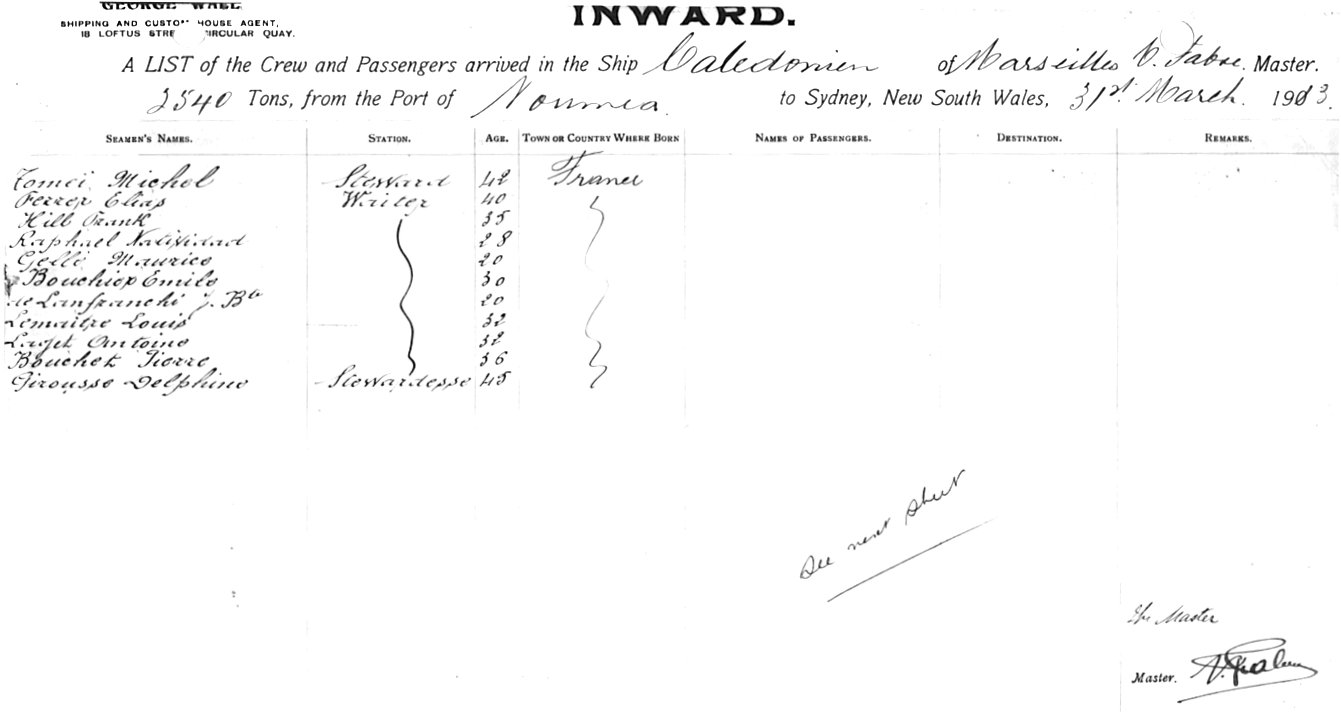 GEORGE WALL
SHIPPING AND CUSTO HOUSE AGENT,
18 LOFTUS STRE CIRCULAR QUAY.
INWARD.
A LIST of the Crew and Passengers arrived in the Ship Caledonien of Marseilles V. Fabre. Master.
2540 Tons, from the Port of Noumea. to Sydney, New South Wales, 31st March. 1913.
SEAMEN'S NAMES. STATION. AGE. TOWN OR COUNTRY WHERE BORN NAMES OF PASSENGERS. DESTINATION. REMARKS.
Tomei Michel Steward 42 France
Ferrer Elias Waiter 40
Hill Frank 35
Raphael Natividad 28
Gelli Maurice 20
Bouchiop Emile 30
de Lanfranchi J. Bte 20
Lemaitre Louis 32
Laget Antoine 32
Bouchet Pierre 36
Girousse Delphine Stewardesse 45
See next sheet
The Master
Master.